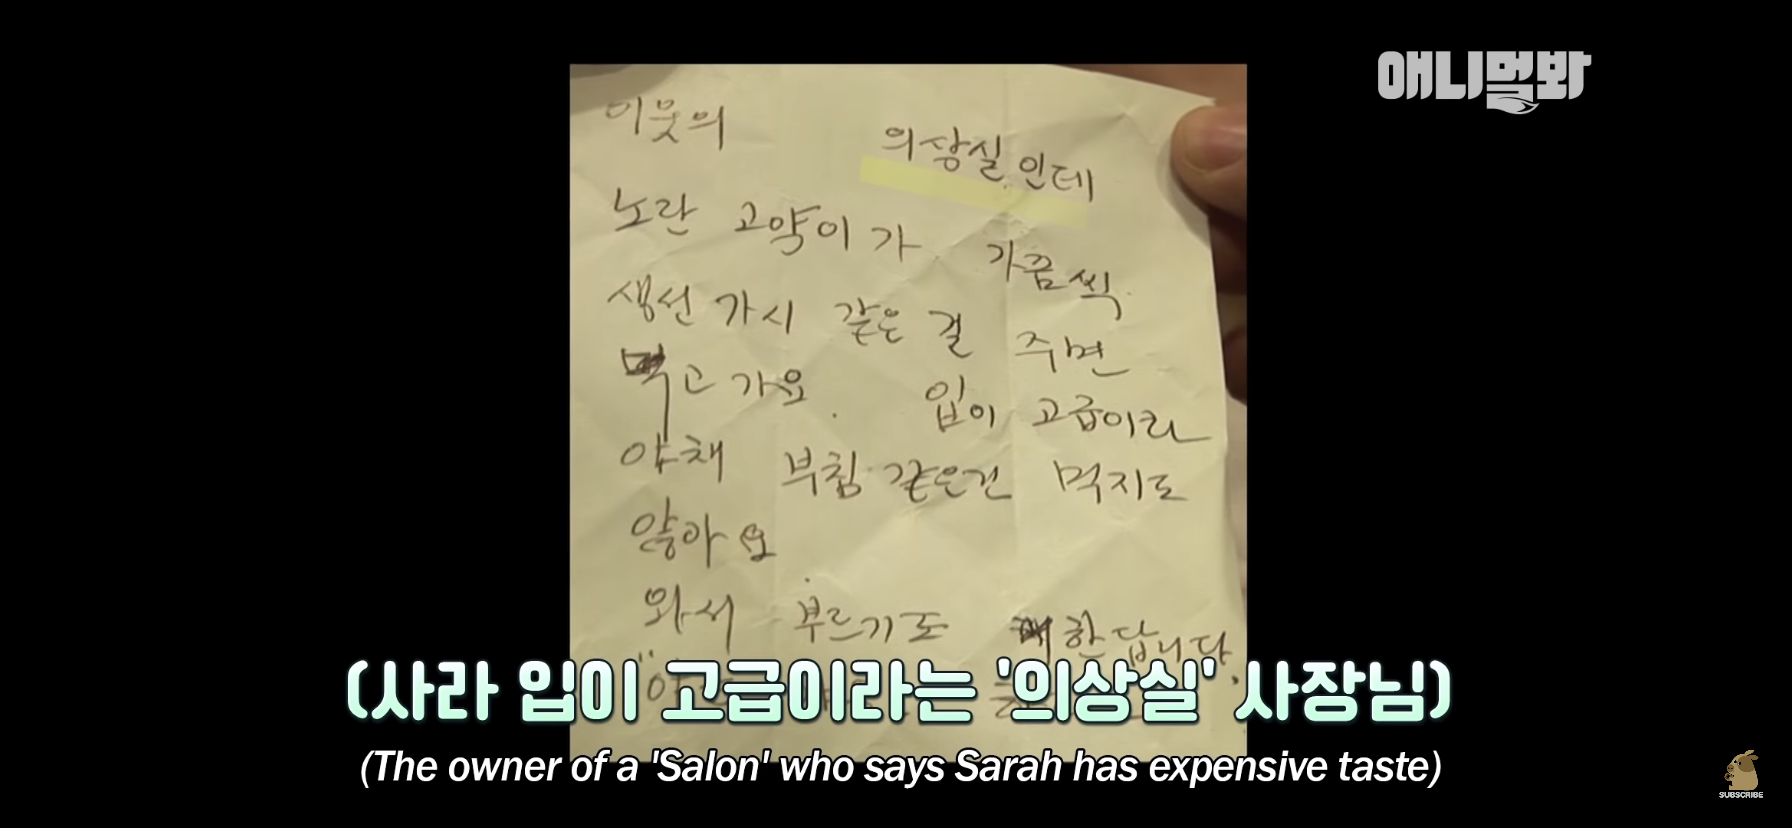 애니멀봐
이웃의 의상실인데
노란 고약이가 가끔씩
생선 가시 같은 걸 주면
먹고 가요. 입이 고급이라
야채 부침 같은건 먹지도
않아요
와서 부르기도 한답니다.
(사라 입이 고급이라는 '의상실' 사장님)
(The owner of a 'Salon' who says Sarah has expensive taste)
SUBSCRIBE